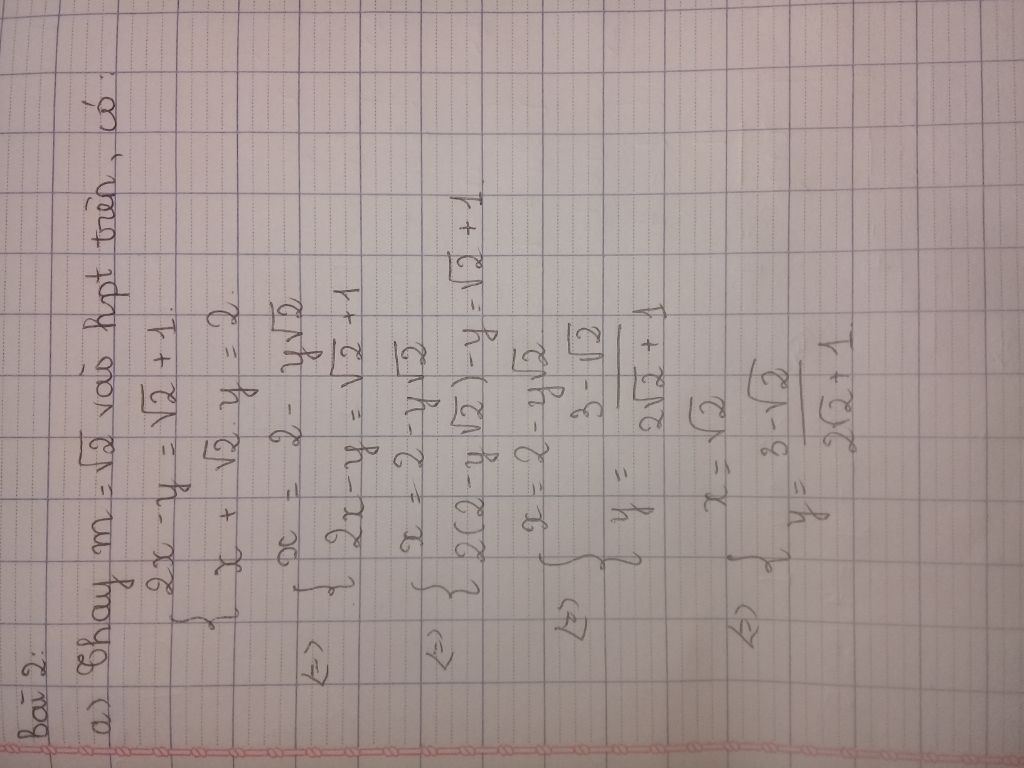 Bài 2:
a) Thay m = √2 vào hpt trên, có:
{ 2x - y = √2 + 1
x + √2. y = 2
<=> { x = 2 - y√2
2x - y = √2 + 1
<=> { x = 2 - y√2
2(2 - y√2) - y = √2 + 1
<=> { x = 2 - y√2
y = (3 - √2)/(2√2 + 1)
<=> { x = √2
y = (3 - √2)/(2√2 + 1)